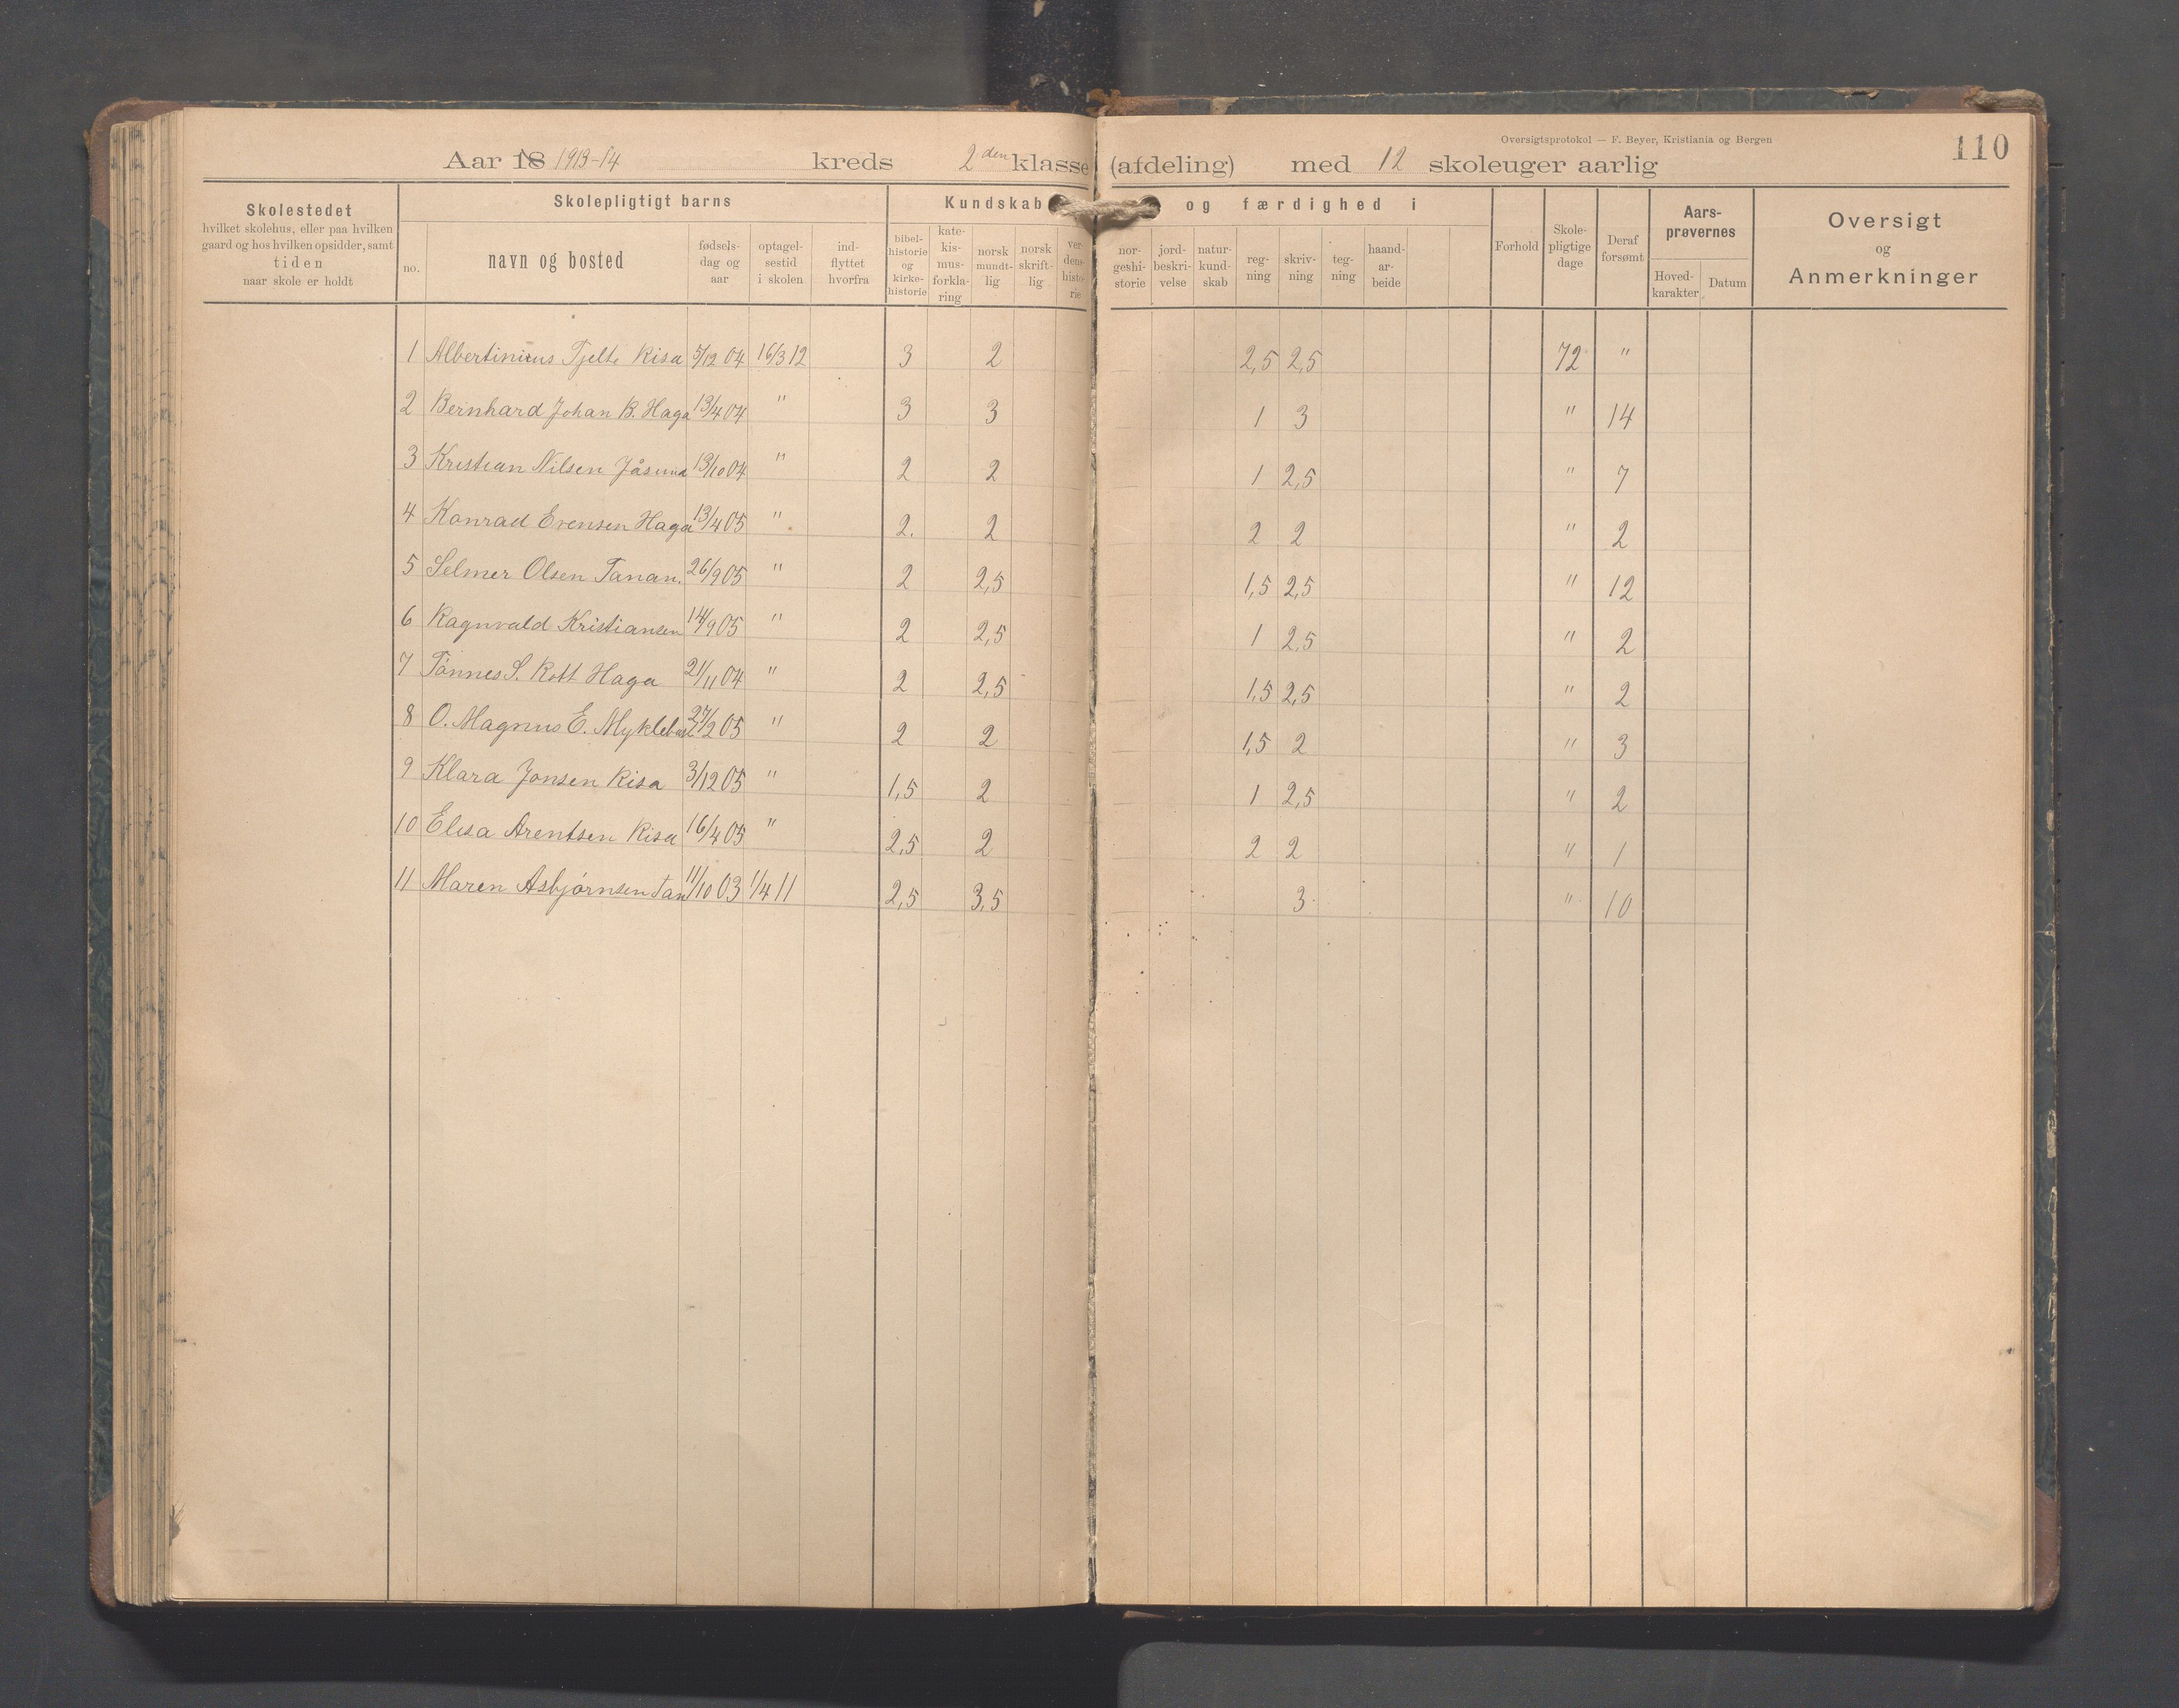 Oversigtsprotokol — F. Beyer, Kristiania og Bergen
110
Aar 18 1913-14 kreds 2den klasse (afdeling) med 12 skoleuger aarlig
Skolestedet
hvilket skolehus, eller paa hvilken
gaard og hos hvilken opsidder, samt
tiden
naar skole er holdt
Skolepligtigt barns
no.
navn og bosted
fødsels-
dag og
aar
optagel-
sestid
i skolen
ind-
flyttet
hvorfra
Kundskab og færdighed i
bibel-
historie
og
kirke-
historie
kate-
kis-
mus-
forkla-
ring
norsk
mundt-
lig
norsk
skrift-
lig
ver-
dens-
histo-
rie
nor-
geshi-
storie
jord-
beskri-
velse
natur-
kund-
skab
reg-
ning
skriv-
ning
teg-
ning
haand-
ar-
beide
Forhold
Skole-
pligtige
dage
Deraf
forsømt
Aars-
prøvernes
Hoved-
karakter
Datum
Oversigt
og
Anmerkninger
1 Albertinius Tjelte Risa 5/12 04 16/3 12 3 2 2,5 2,5 72 "
2 Bernhard Johan B. Haga 13/4 04 " 3 3 1 3 " 14
3 Kristian Nilsen Jåsund 13/10 04 " 2 2 1 2,5 " 7
4 Konrad Evensen Haga 13/4 05 " 2. 2 2 2 " 2
5 Selmer Olsen Tanan. 26/9 05 " 2 2,5 1,5 2,5 " 12
6 Ragnvald Kristiansen 14/9 05 " 2 2,5 1 2,5 " 2
7 Tønnes S. Rott Haga 21/11 04 " 2 2,5 1,5 2,5 " 2
8 O. Magnus E. Myklebust 27/2 05 " 2 2 1,5 2 " 3
9 Klara Jonsen Risa 3/12 05 " 1,5 2 1 2,5 " 2
10 Elisa Arentsen Risa 16/4 05 " 2,5 2 2 2 " 1
11 Maren Asbjørnsen Tan 11/10 03 1/4 11 2,5 3,5 3 " 10